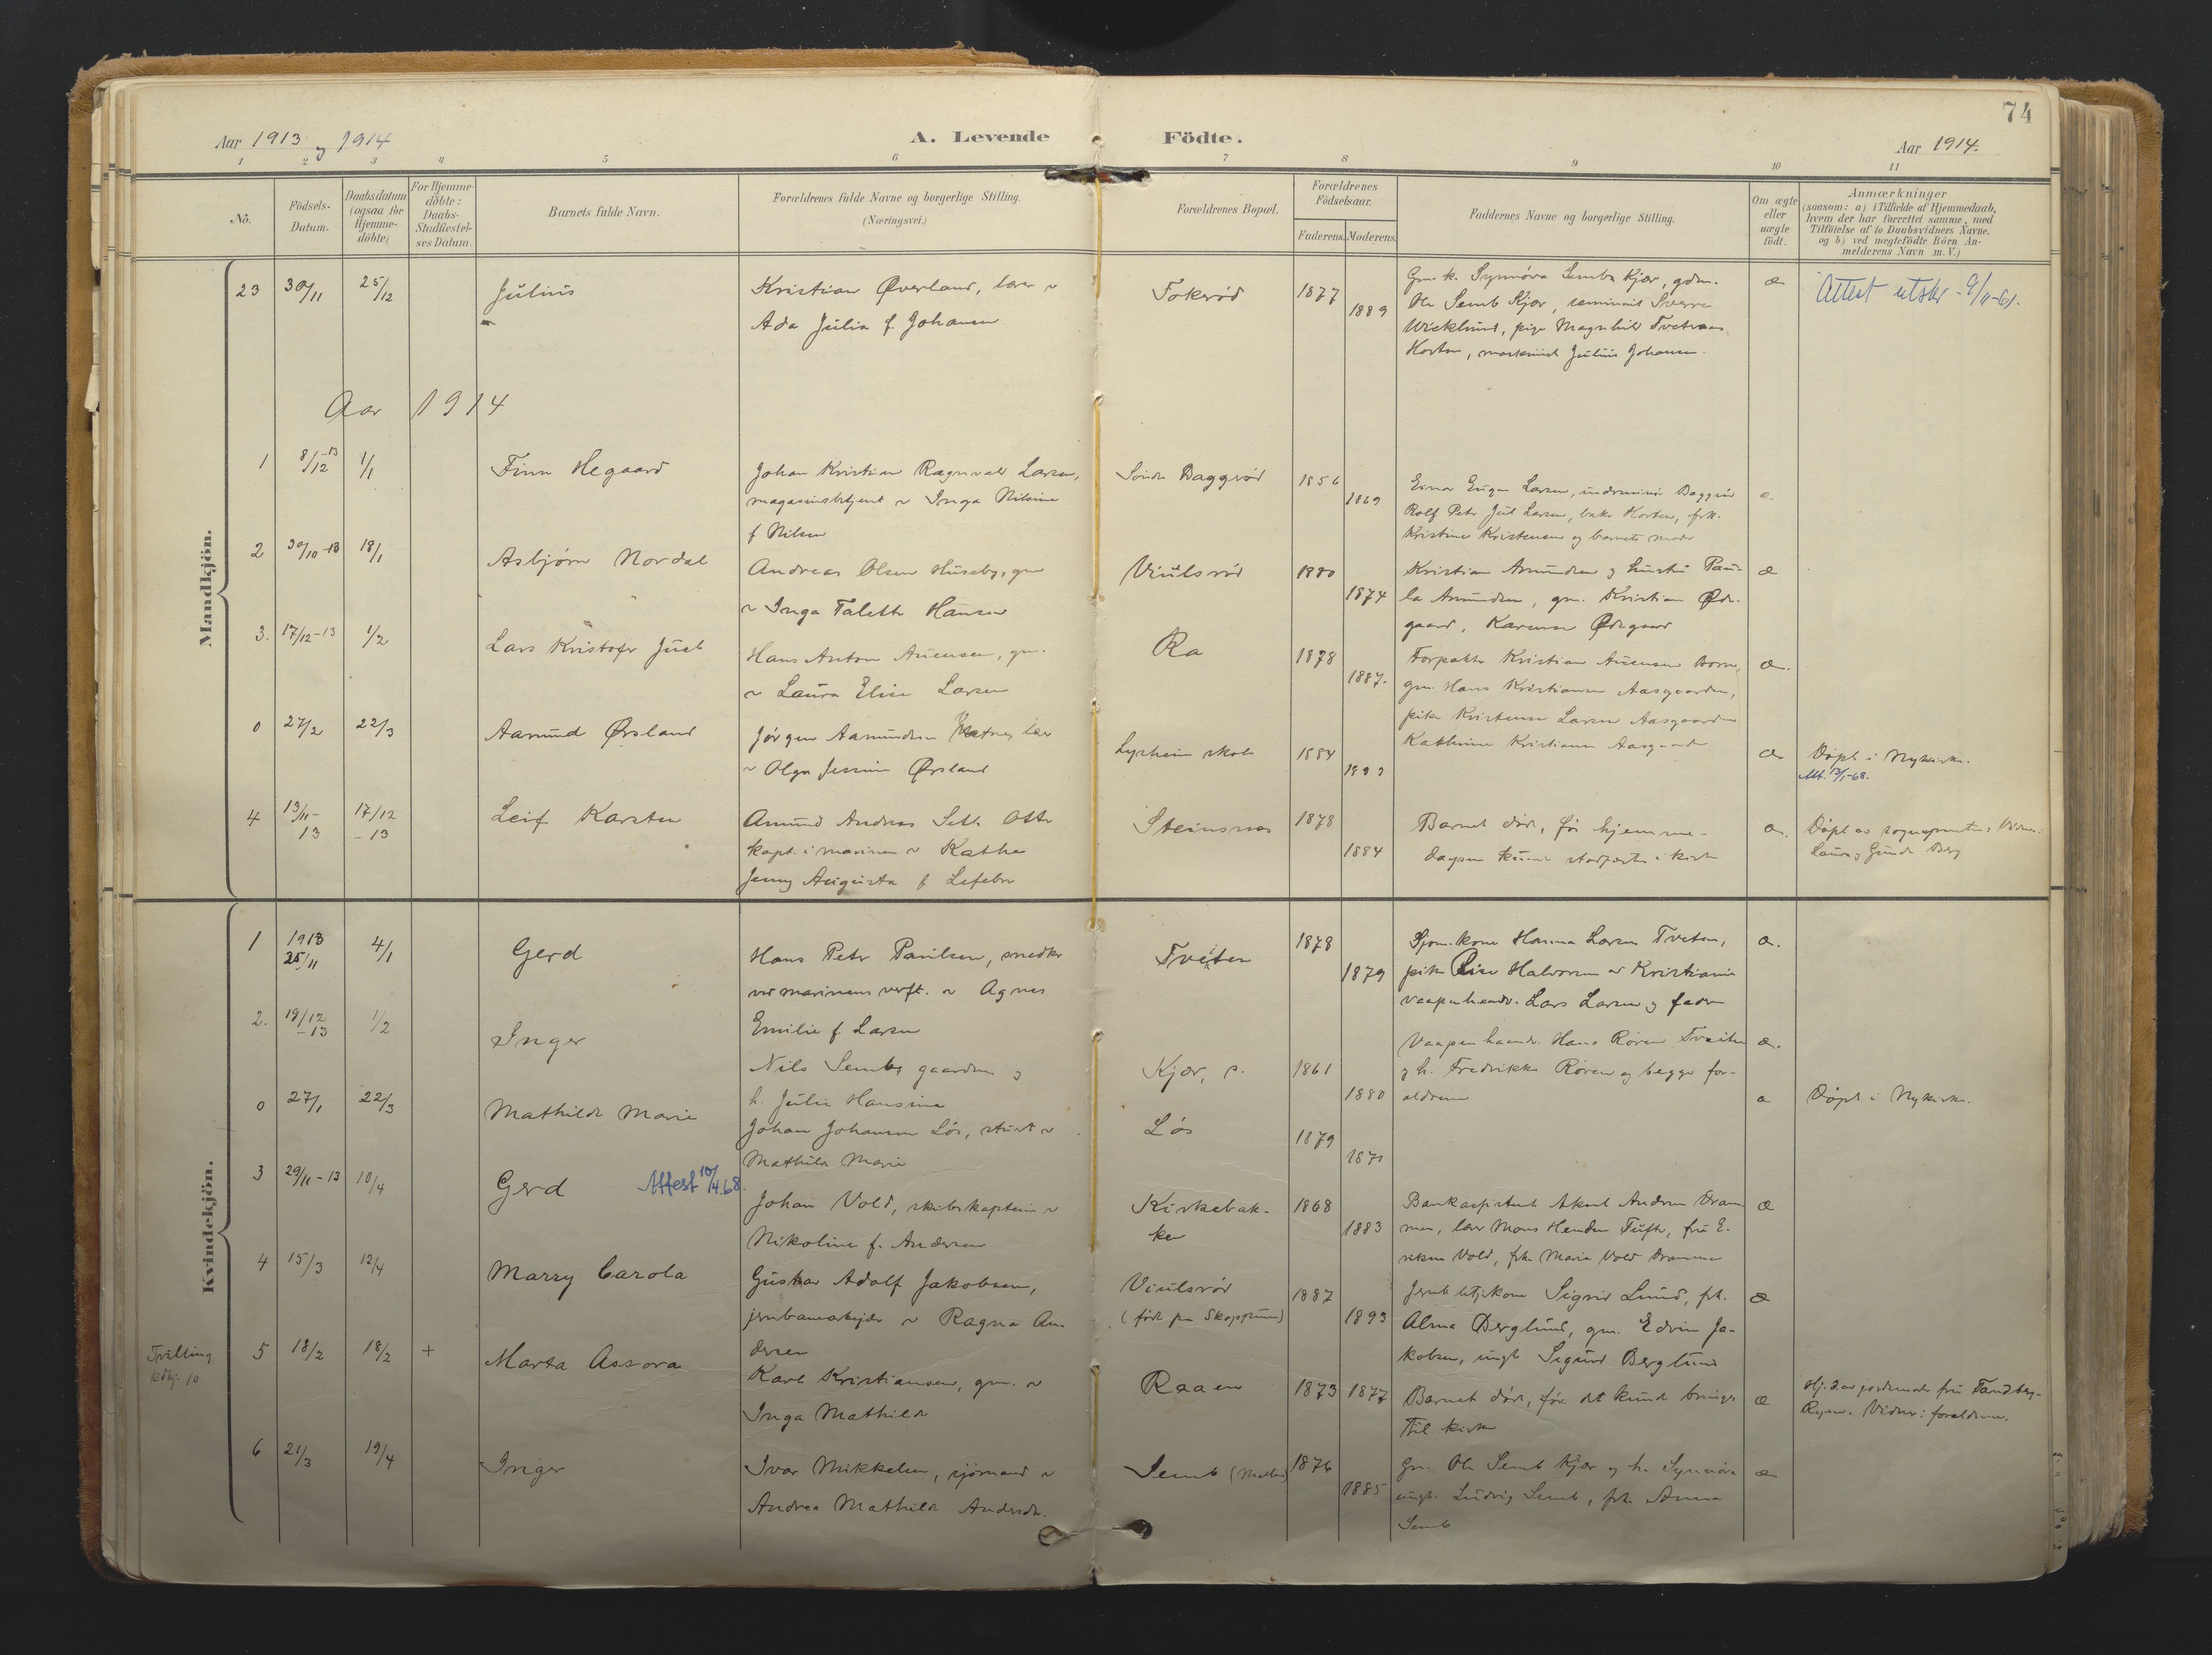 74
Aar 1913 og 1914
A. Levende Födte.
Aar 1914.
1 2 3 4 5 6 7 8 9 10 11
No.
Födsels-
Datum.
Daabsdatum
(ogsaa for
Hjemme-
döbte)
For Hjemme-
döbte:
Daabs-
Stadfæstel-
ses Datum.
Barnets fulde Navn.
Forældrenes fulde Navne og borgerlige Stilling.
(Næringsvei.)
Forældrenes Bopæl.
Forældrenes
Födselsaar.
Faderens. Moderens.
Faddernes Navne og borgerlige Stilling.
Om ægte
eller
uægte
födt.
Anmærkninger
(saasom: a) i Tilfælde af Hjemmedaab,
hvem der har forrettet samme, med
Tilföielse af to Daabsvidners Navne,
og b) ved uægtefödte Börn An-
melderens Navn m. V.)
Mandkjön.
23 30/11 25/12
Julius
Kristian Øverland, lærer
Ada Julia f. Johansen
Tokerød
1877
1889
Gm. k. Synnöva Semb Kjær, gdm.
Ole Semb Kjær, seminarist Sverre
Wicklund, pige Magnhild Tvetenaas
Horten, maskinist Julius Johansen.
æ
Attest utskr - 9/11-61.
Aar 1914
1 8/12-13 1/1
Finn Hegaard
Johan Kristian Ragnvald Larsen,
magasinsbetjent Inga Nilsine
f Nilsen
Søndre Baggerød
1856
1869
Einar Eugen Larsen, Baggerød
Rolf Petr Juel Larsen, baker Horten, frk.
Kristine Kristensen og barnets moder
2 30/10-13 18/1
Asbjørn Nordal
Andreas Olsen Huseby, gm
Inga Talette Hansen
Viulsrød
1880
1874
Kristian Amundsen og hustru Pau-
la Amundsen, gm. Kristian Øde-
gaard, Karense Ødegaard
æ
3. 17/12-13 1/2
Lars Kristofer Juel
Hans Anton Auensen, gm.
Laura Elise Larsen
Ra
1878
1887.
Forpakter Kristian Auensen Borre,
gm. Hans Kristiansen Aasgaarden,
pike Kristense Larsen Aasgaarden
Kathrine Kristiansen Aasgaarden
æ.
0 27/2 22/3
Aamund Ørsland
Jörgen Aamundsen lær
Olga Jessine Ørsland
Lysheim skole
1884
æ
Döpt i Nykirke.
Att. 13/1-68.
4 13/11-13 17/12-13
Leif Karsten
Amund Andreas Seth Otter
kapt. i marinen Kathe
Jenny Augusta f Lefebre
Steinsnes
1878
1884
Barnet döde, för hjemme-
daapen kunde stadfæstes i kirken
æ.
Döpt av sognepresten. Vidner:
Laura og Gunda Berg
Kvindekjön.
1 1913 25/11 4/1
Gerd
Hans Peter Paulsen, snedker
ved marinens verft. Agnes
Emilie f. Larsen
Tveiten
1878
1879
Sjöm. kone Hanna Larsen Tveten,
pike Lise Halvorsen av Kristiania
vaapenhandv. Lars Larsen og faderen
æ.
2. 19/12-13 1/2
Inger
Nils Semb, gaardm og
h. Julie Hansine
Kjær, s.
1861
1880
Vaapenhandv. Hans Røren Tveiten
og h. Fredrikke Røren og begge for-
ældrene
æ.
0 27/1 22/3
Mathilde Marie
Johan Johansen Lös, stuert
Mathilde Marie
Lös
1879
1871
æ
Döpt i Nykirke.
3 29/11-13 10/4
Gerd Attest 10/4.68.
Johan Vold, skibskaptein
Nikoline f. Andersen
Kirkebak-
ken
1868
1883
Bankassistent Aksel Andersen Dram-
men, lærer Mons Henden Tufte, fru E-
riksen Vold, frk. Marie Vold Drammen
æ
4 15/3 12/4
Marry Carola
Gustav Adolf Jakobsen,
jernbanearbejder Ragna An-
dersen
Viulsrød
(född paa Skoppum)
1887
1893
Jernb. betj. kone Sigrid Lund, frk.
Alma Berglund, gm. Edvin Ja-
kobsen, ungk Sigurd Berglund
æ
Tvilling
kdkj. 10
5 18/2 18/2 +
Marta Assora
Karl Kristiansen, gm.
Inga Mathilde
Raaen
1873 1877
Barnet döde, för det kunde bringes
til kirke
æ
Hj.d. av jordmoder fru Tandberg-
Ryen. Vidner: forældrene.
6 21/3 19/4
Inger
Ivar Mikkelsen, sjömand
Andrea Mathilde Andersdtr.
Semb (Mellem)
1876
1885
Gm. Ole Semb Kjær og h. Synnöva
ungk. Ludvig Semb, frk. Anna
Semb
æ